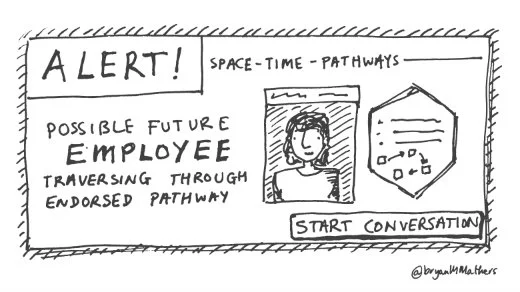 ALERT!
SPACE-TIME-PATHWAYS
POSSIBLE FUTURE
EMPLOYEE
TRAVERSING THROUGH
ENDORSED PATHWAY
START CONVERSATION
@bryanMMathers